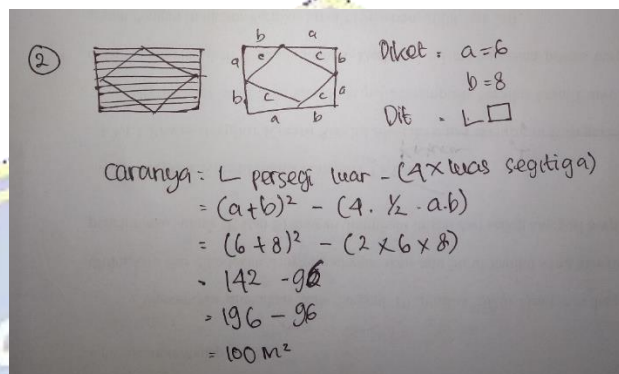 2
b a
a c c b
b c c a
a b
Diket : a=6
b=8
Dit . L□
Caranya : L persegi luar - (4x luas segitiga)
= (a+b)² - (4. ½ . a.b)
= (6+8)² - (2x6x8)
= 142 - 96
= 196 - 96
= 100 M²